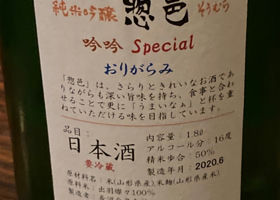 純米吟醸 惣邑 そうむら
吟吟 Special
おりがらみ
「惣邑」は、さらりときれいなお酒であ
りながらも深い旨味を持ち、食事と合わ
せることで更に「うまいなぁ」と杯を重
ねていただける味を目指しています。
品目:
日本酒
要冷蔵
内容量:1.8ℓ
アルコール分:16度
精米歩合:50%
製造年月:2020.6
原材料:米(山形県産)米麹(山形県産)
原料米:出羽燦々100%
製造者: